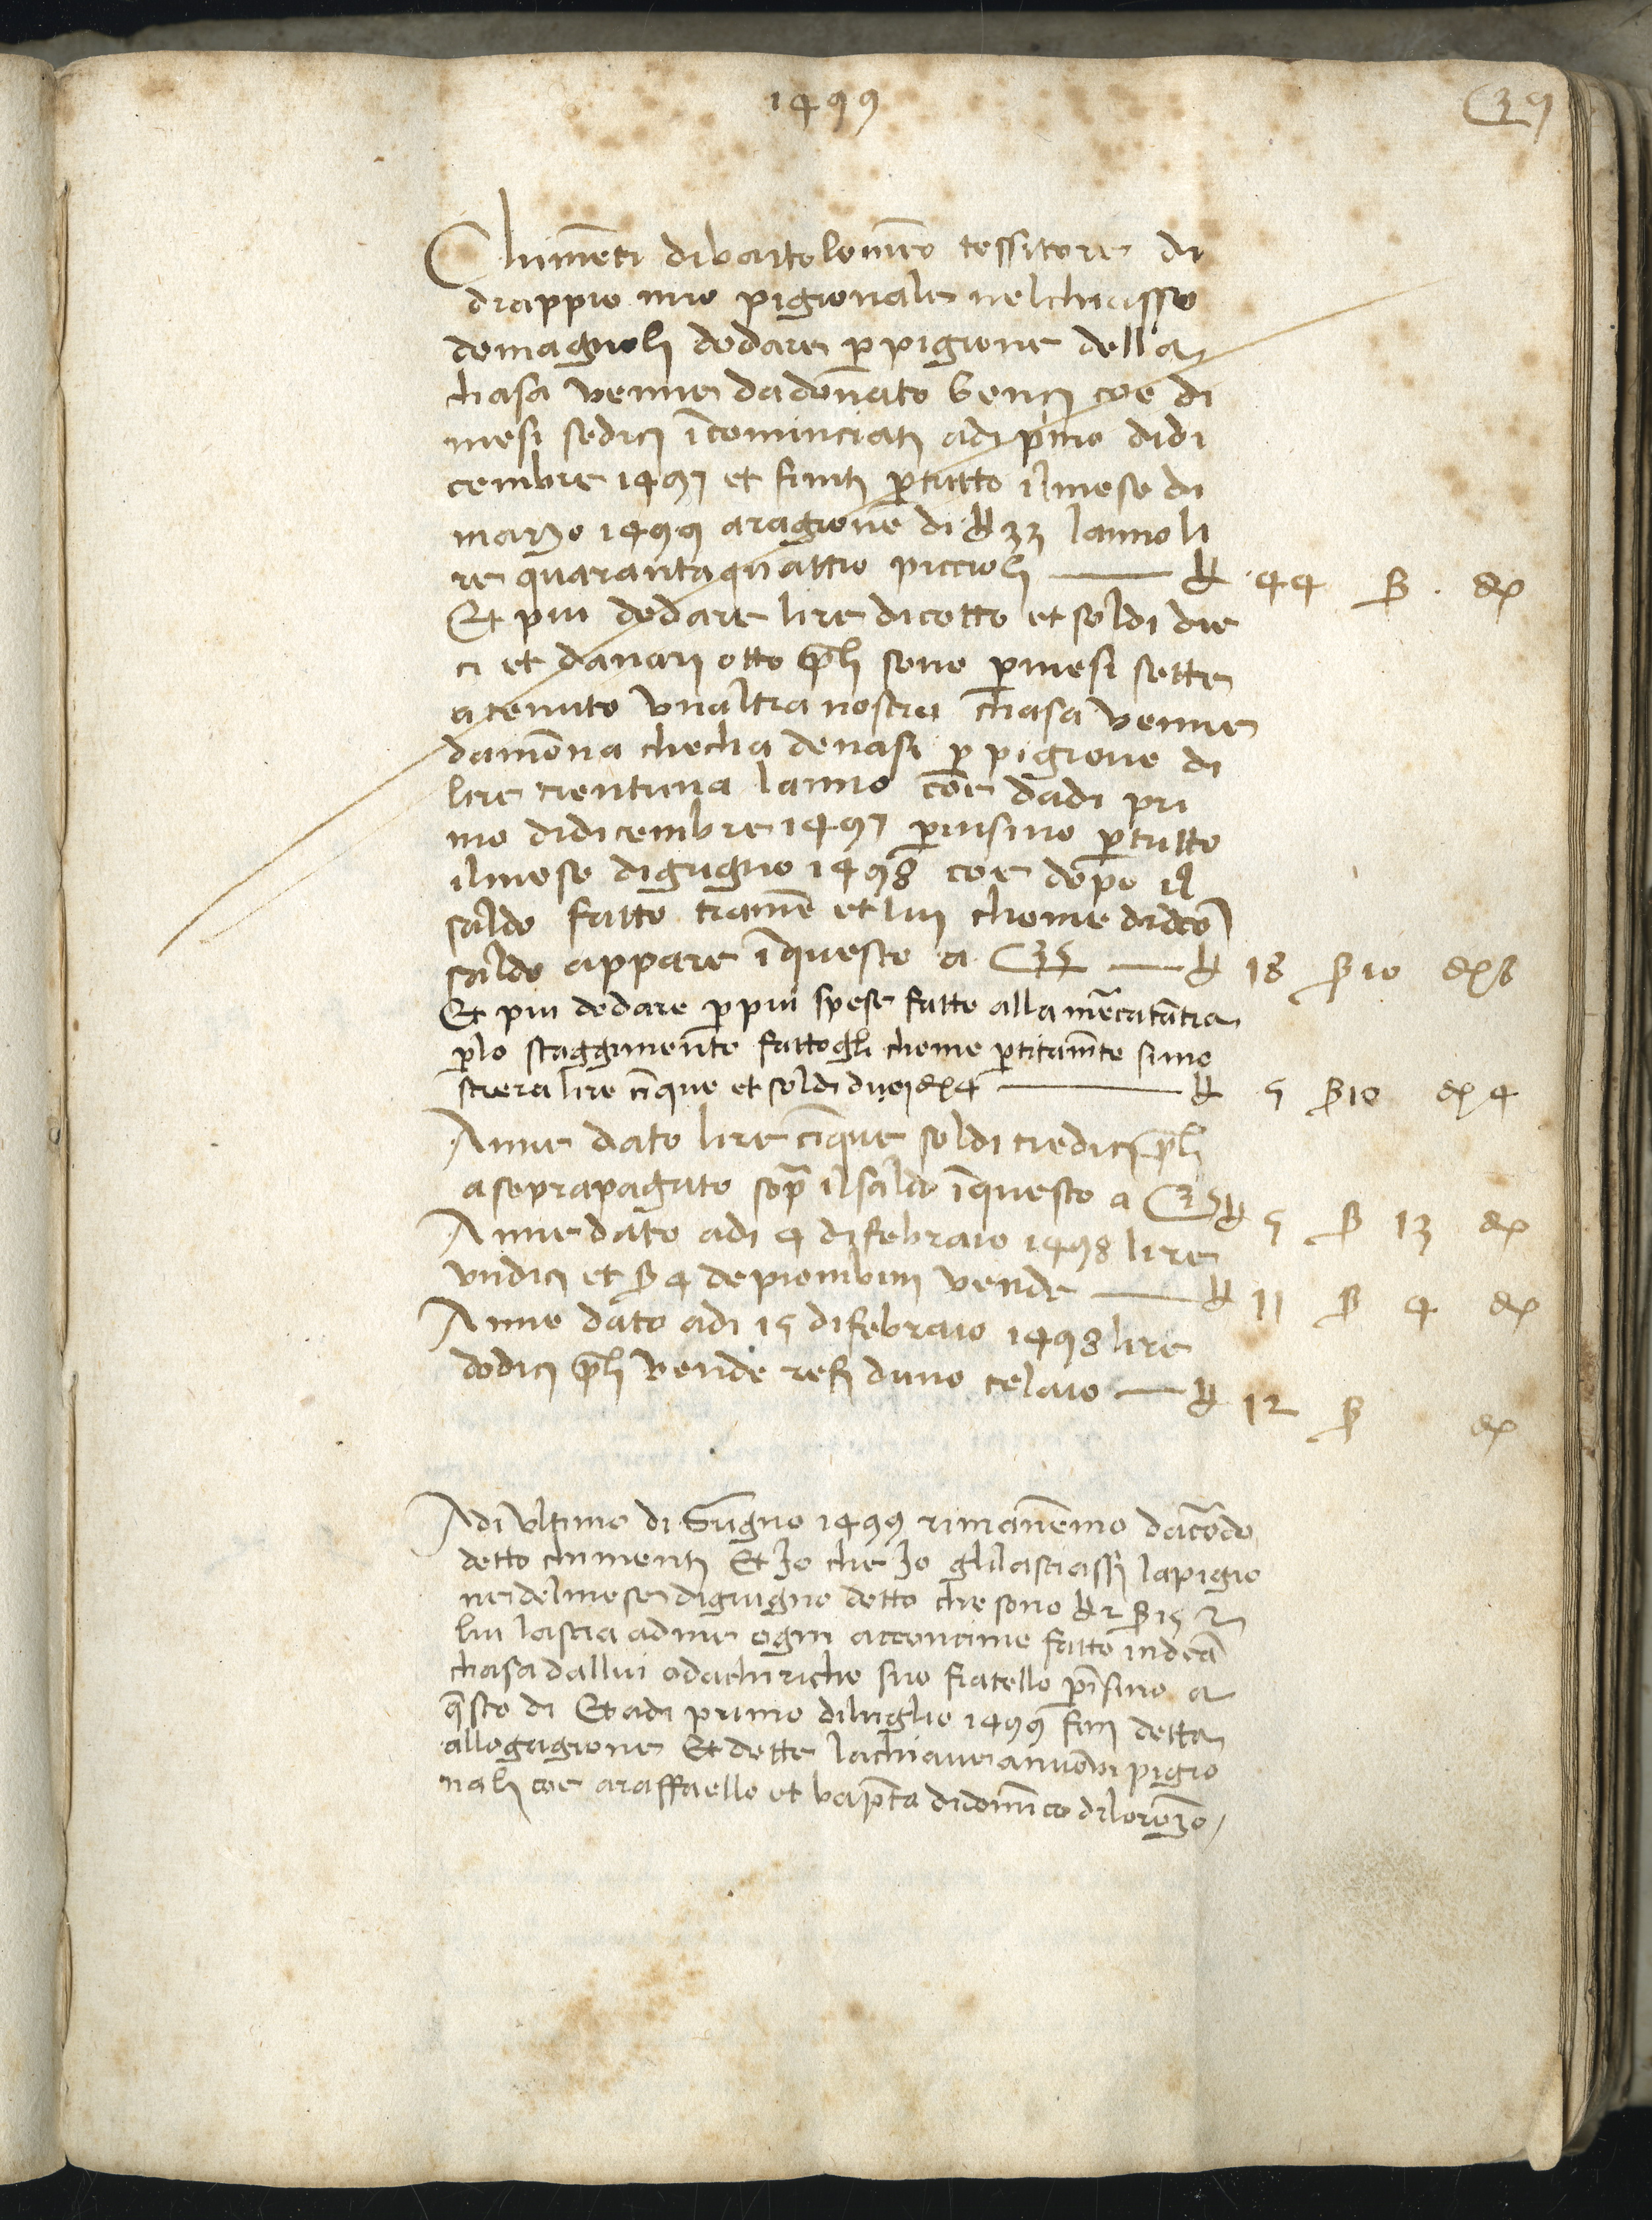 1499
39
Chimēti di bartolomeo tessitore di
drappio mio pigionale nel chiasso
de magnoli de dare p pigione della
chasa venne da donato benci coe di
mesi sedici īcominciati adi pmo di di
cembre 1497 et finiti p tutto il mese di
marzo 1499 a ragione di £ 33 lanno li
re quaranta quattro piccioli — £ 44 ß . d
Et piu de dare lire diciotto et soldi die
ci et danari otto qli sono p mesi sette
a tenuto unaltra nostra chasa venne
da mōna checha de nasi p pigione di
lire trentuna lanno coe dadi pri
mo di dicembre 1497 p insino p tutto
il mese di giugno 1498 coe dopo il
saldo fatto tra me et lui chome di dcō
saldo appare ī questo a C 35 — £ 18 ß 10 d 8
Et piu de dare p piu spese fatte alla mercatātia
p lo staggimento fattogli chome ptitamte si mo
sterra lire cīque et soldi dieci d 4 — £ 5 ß 10 d 4
Anne dato lire cīque soldi tredici qli
a soprapagato sopra il saldo ī questo a C 35 £ 5 ß 13 d
Anne dato adi 4 di febraio 1498 lire
undici et ß 4 de piombini vende — £ 11 ß 4 d
Anne dato adi 15 di febraio 1498 lire
dodici qli vende resi duno telaio — £ 12 ß d
Adi ultimo di Giugno 1499 rimanemo dacordo
detto chimenti Et Io che Io gli lasciassi la pigio
ne del mese di giugno detto che sono £ 2 ß 15 Et
lui lascia ad me ogni acconcime fatto in dcā
chasa dallui o da chiricho suo fratello p īsino a
qsto di Et adi primo di luglio 1499 fini detta
allogagione Et dette la chiave a nuovi pigio
nali coe a raffaello et bapta di domīco di lorēzo